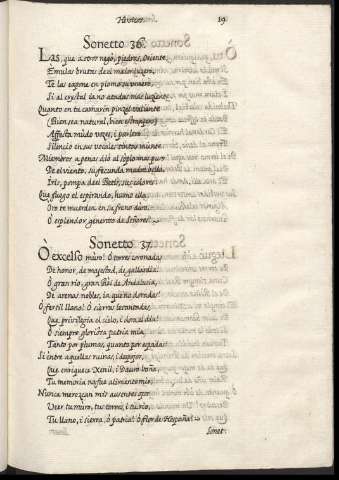 19.
Sonetto 36.
Las, que a otro negò, piedras, Oriente,
Emulas brutas de el maior luzero,
Te las en plomo
Si al crystal ia no atadas mas luziente.
Quanto en tu camarin pinzel valiente
(Bien sea natural, bien estrangero)
Affecta mudo vozes, i parlero
Silencio en sus vocales tintas miente.
Miembros apenas diò al soplo mas puro
De el viento, su fecunda madre bella,
Iris, pompa de el Betis, sus colores
Que fuego el espirando, humo ella
Oro te muerden en su freno duro,
Ò esplendor generoso de Señores.
Sonetto 37.
Ò excelso muro! Ò torres coronadas
De honor, de majestad, de gallardia!
Ò gran rio, gran Rei de Andalucia,
De arenas nobles, ia que no doradas!
Ò fertil llano! Ò sierras levantadas,
Que privilegia el cielo, i dora el dia!
Ò siempre gloriosa patria mia,
Tanto por plumas, quanto por espadas
Si entre aquellas ruinas, i despojos,
Que enriquece Xenil, i Dauro baña,
Tu memoria no fue alimento mio,
Nunca merezcan mis ausentes ojos
Veer tu muro, tus torres, i tu rio,
Tu llano, i sierra, ò patria! ò flor de España!
Sonet: